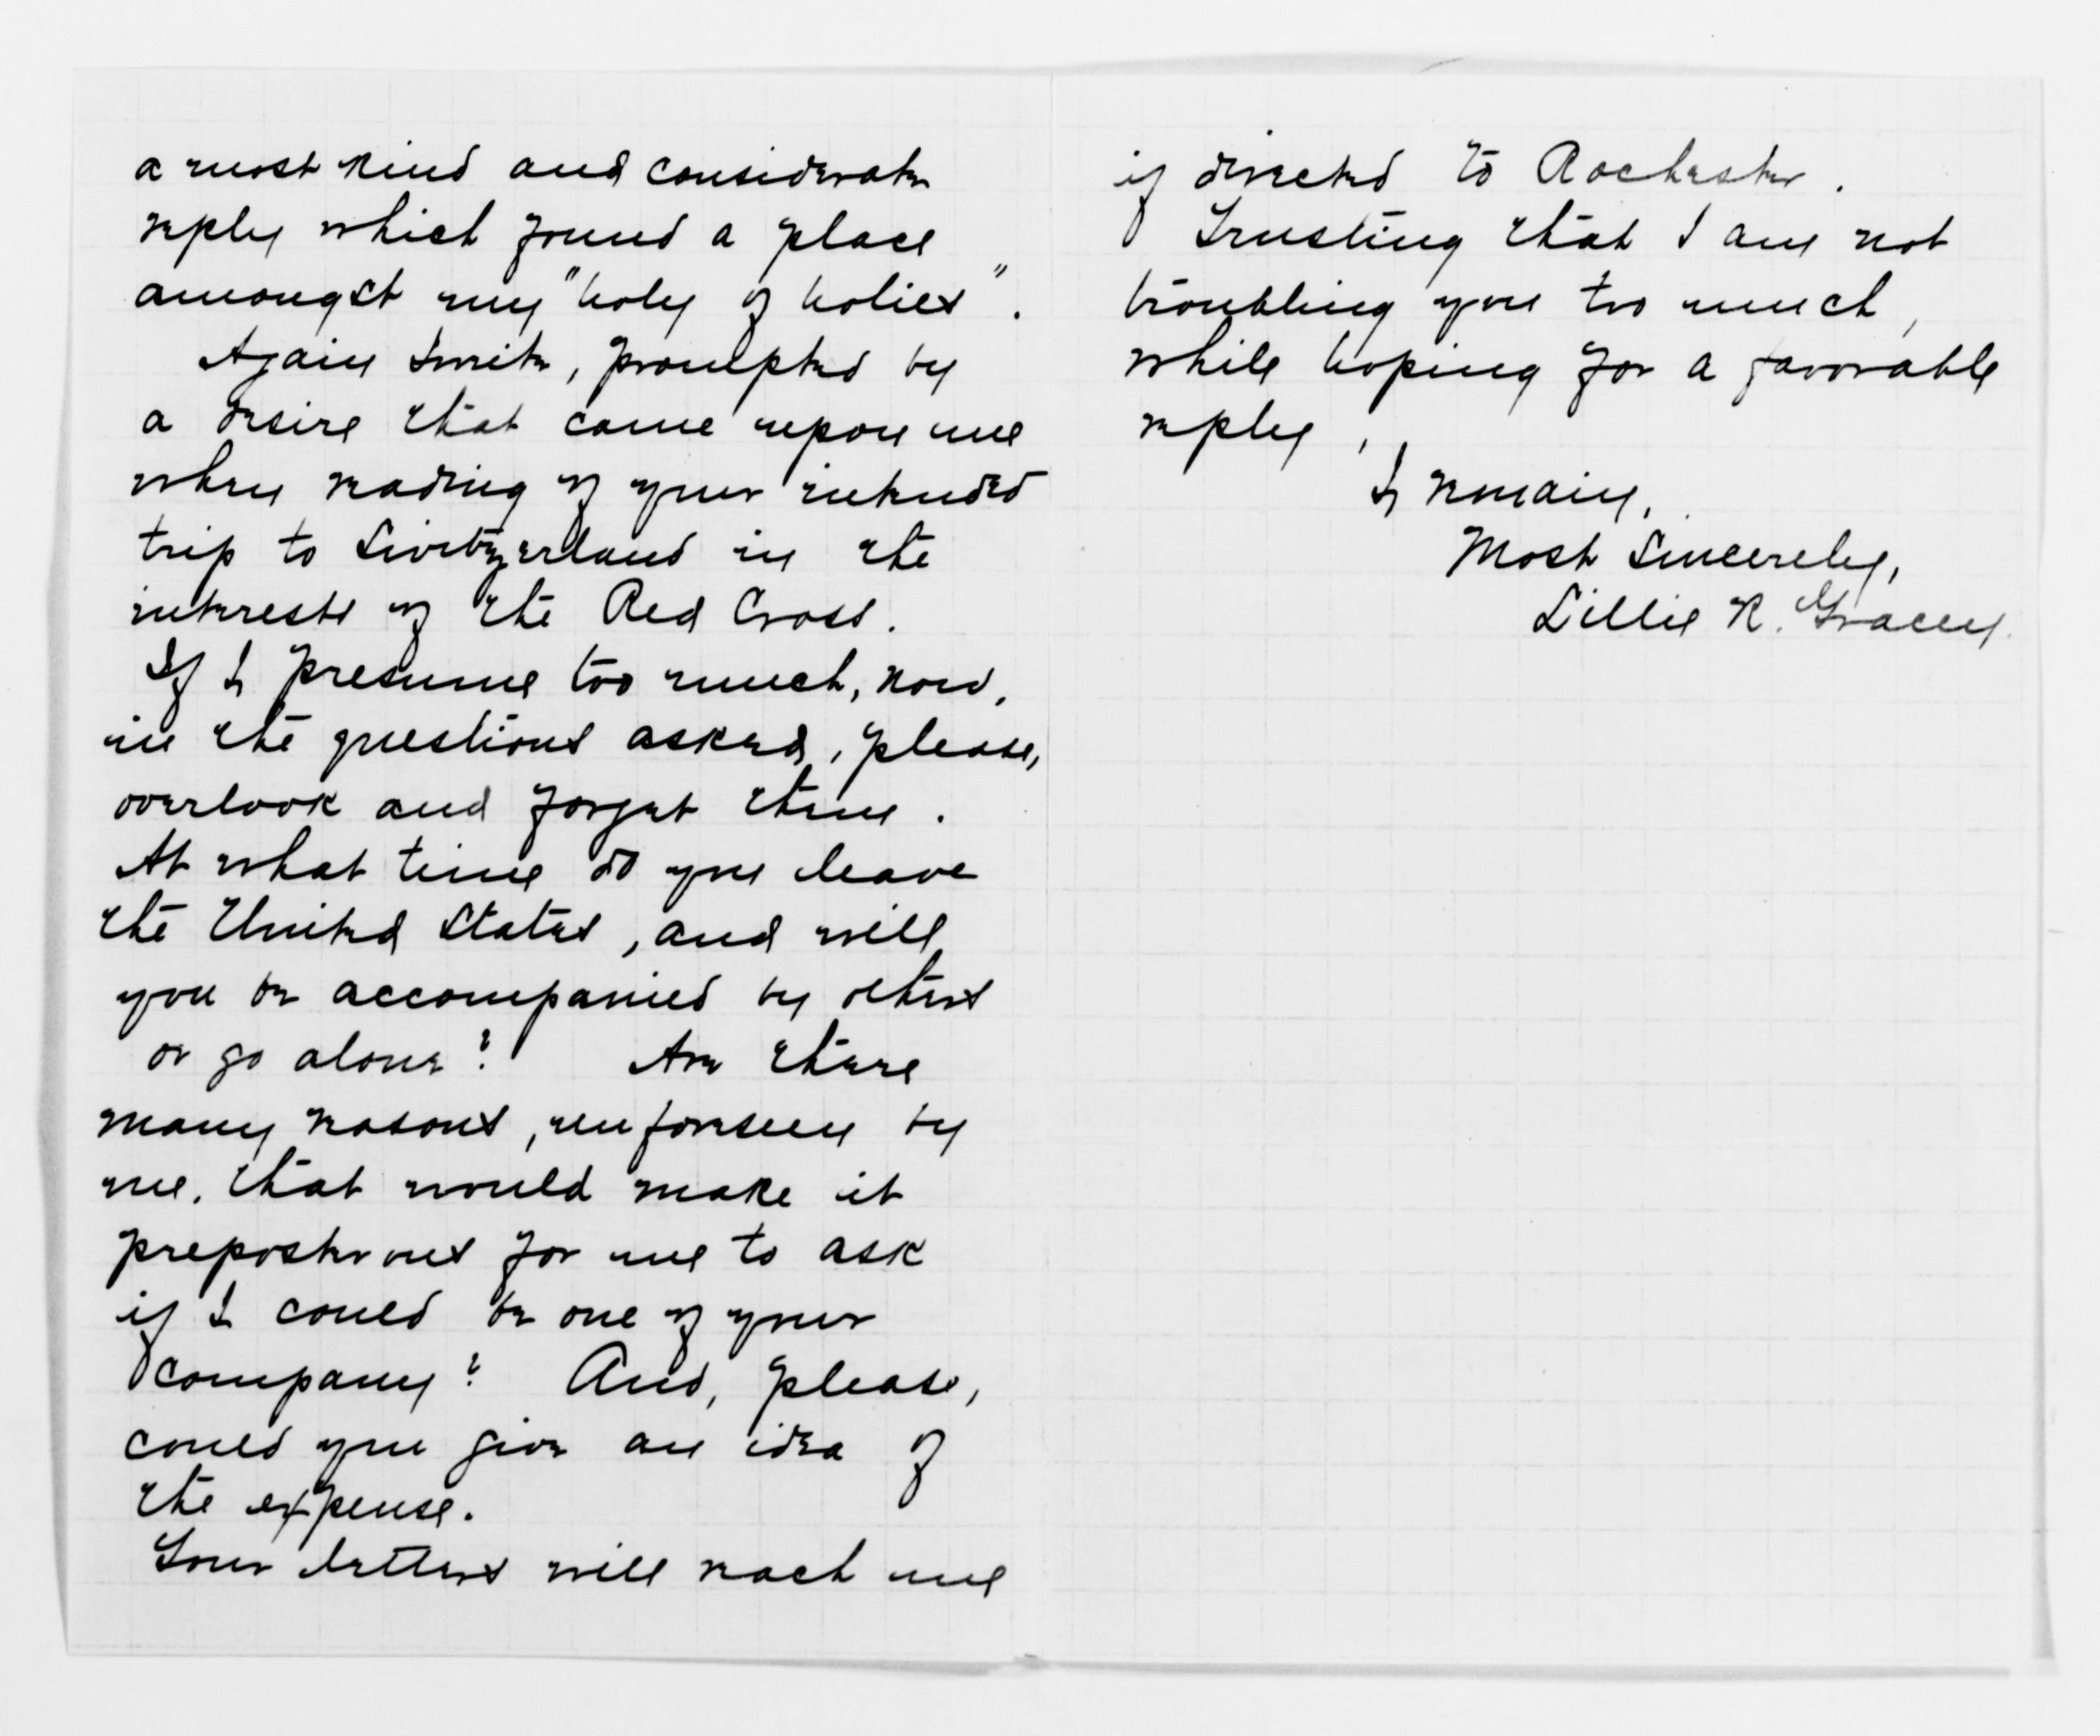 a most kind and considerate
reply which found a place
amongst my "holy of holies".
Again I write, prompted by
a desire that came upon me
when reading of your intended
trip to Switzerland in the
interests of the Red Cross.
If I presume too much, now,
in the questions asked, please,
overlook and forget them.
At what time do you leave
the United States, and will
you be accompanied by others
or go alone? Are there
many reasons, unforseen by
me, that would make it
preposterous for me to ask
if I could be one of your
company? And, please,
could you give an idea of
the expense.
Your letters will reach me
if directed to Rochester.
Trusting that I am not
troubling you too much,
while hoping for a favorable
reply,
I remain,
Most Sincerely,
Lillie R. Gracey.